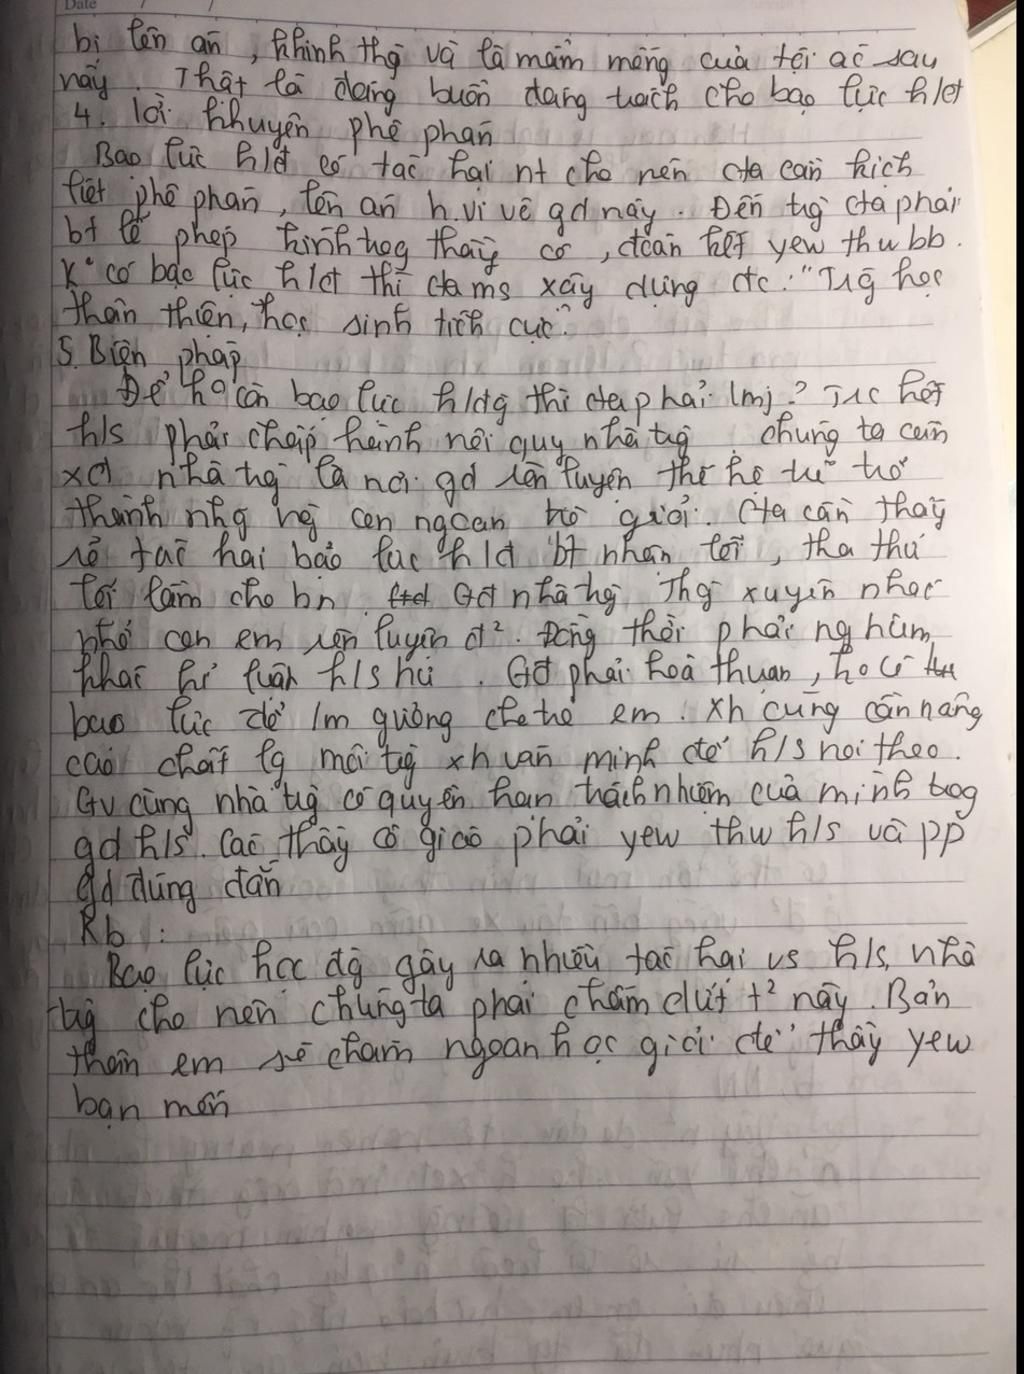 Date / /
bị lên án, khinh thg và là mầm mống của tội ác sau
này. Thật là đáng buồn đáng trách cho bạo lực h/đ
4. lời khuyên phê phán
Bạo lực h/đ có tác hại nt cho nên cta cần kịch
liệt phê phán, lên án h.vi về gd này. Đến tg cta phải
bt lễ phép kính tog thầy cô, đoàn kết yew thw bb.
K° có bạo lực h/đ thì cta ms xây dựng đc: "Trg học
thân thiện, học sinh tích cực".
5. Biện pháp
Để k° còn bạo lực h/đg thì cta phải lmj? Trc hết
h/s phải chấp hành nội quy nhà trg chúng ta cần
xđ nhà trg là nơi gd rèn luyện thế hệ trẻ trở
thành nhg ng con ngoan trò giỏi. Cta cần thấy
rõ tác hại bạo lực h/đ bt nhận lỗi, tha thứ
lỗi lầm cho bn. Gđ nhà trg Thg xuyên nhắc
nhở con em rèn luyện đ². Đồng thời phải nghiêm
khắc kỉ luật h/s hư. Gđ phải hoà thuận, ko có
bạo lực để lm gương cho trẻ em. Xh cũng cần nâng
cao chất lg môi trg xh văn minh để h/s noi theo.
Gv cùng nhà trg có quyền hạn trách nhiệm của mình trog
gd h/s. Các thầy cô giáo phải yew thw h/s và pp
gd đúng đắn
Kb :
Bạo lực học đg gây ra nhiều tác hại vs h/s, nhà
trg cho nên chúng ta phải chấm dứt t² này. Bản
thân em sẽ chăm ngoan học giỏi để thầy yew
bạn mến